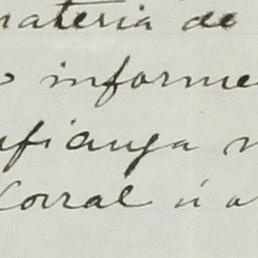 materia de
o informe
nfianza n
Corral ú o